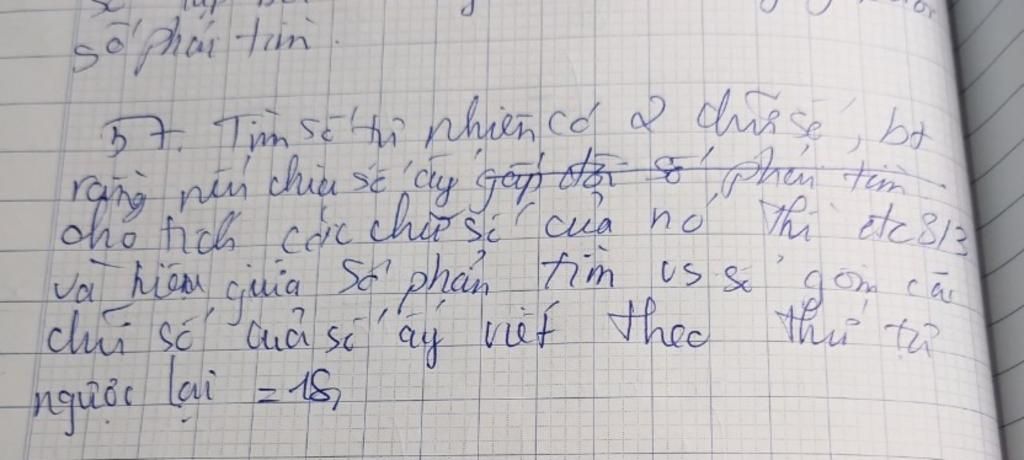 số phải tìm.
57. Tìm số tự nhiên có 2 chữ số, bt
rằng nếu chia số ấy gấp đôi số phải tìm
cho tích các chữ số của nó thì đc 8/3
và hiệu giữa số phải tìm vs số gồm các
chữ số của số ấy viết theo thứ tự
ngược lại = 18,